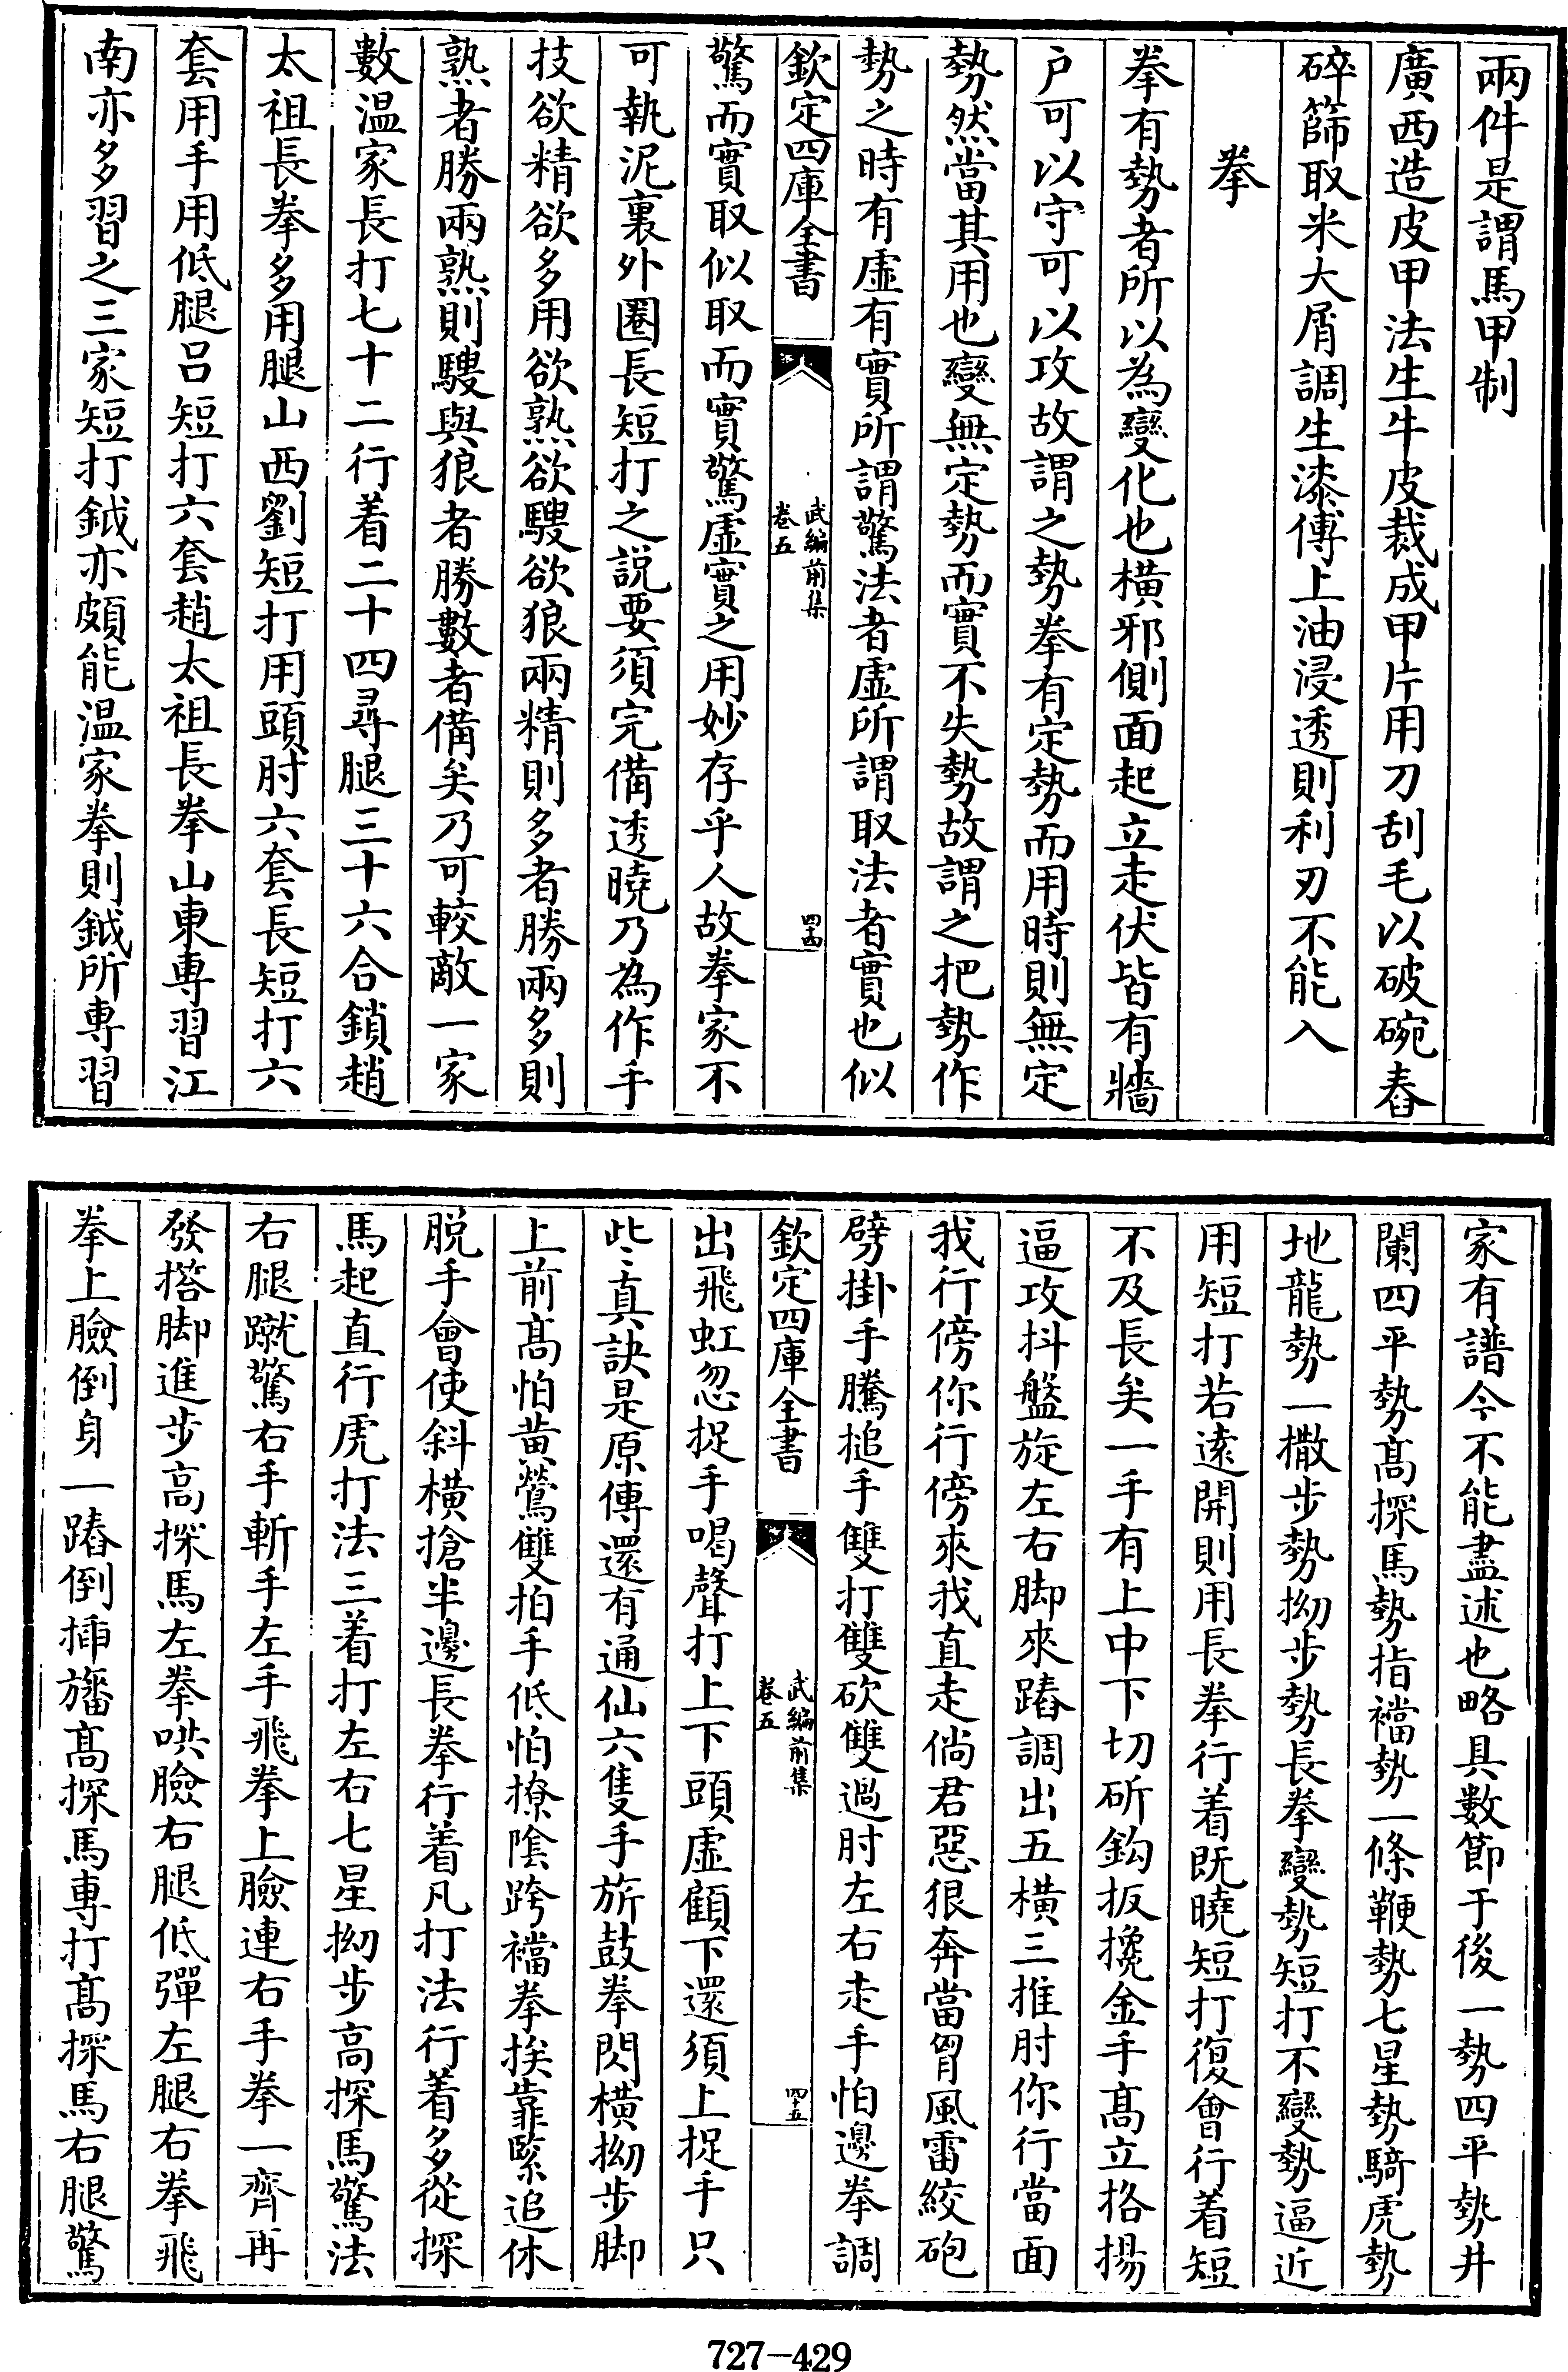 兩件是謂馬甲制
廣西造皮甲法生牛皮裁成甲片用刀刮毛以破碗舂
碎篩取米大屑調生漆傅上油浸透則利刃不能入
拳
拳有勢者所以為變化也橫邪側面起立走伏皆有牆
户可以守可以攻故謂之勢拳有定勢而用時則無定
勢然當其用也變無定勢而實不失勢故謂之把勢作
勢之時有虚有實所謂驚法者虚所謂取法者實也似
欽定四庫全書
武編前集
卷五
四十四
驚而實取似取而實驚虚實之用妙存乎人故拳家不
可執泥裏外圈長短打之説要須完備透曉乃為作手
技欲精欲多用欲熟欲騪欲狼兩精則多者勝兩多則
熟者勝兩熟則騪與狼者勝數者備矣乃可較敵一家
數温家長打七十二行着二十四尋腿三十六合鎖趙
太祖長拳多用腿山西劉短打用頭肘六套長短打六
套用手用低腿呂短打六套趙太祖長拳山東專習江
南亦多習之三家短打鉞亦頗能温家拳則鉞所專習
家有譜今不能盡述也略具數節于後一勢四平勢井
闌四平勢髙探馬勢指襠勢一條鞭勢七星勢騎虎勢
地龍勢一撒步勢拗步勢長拳變勢短打不變勢逼近
用短打若逺開則用長拳行着既曉短打復會行着短
不及長矣一手有上中下切斫鈎扳攙金手髙立挌揚
逼攻抖盤旋左右脚來踏調出五橫三推肘你行當面
我行傍你行傍來我直走倘君惡狠奔當胷風雷絞砲
劈掛手騰搥手雙打雙砍雙過肘左右走手怕邊拳調
欽定四庫全書
武編前集
卷五
四十五
出飛虹忽捉手喝聲打上下頭虚顧下還須上捉手只
此真訣是原傳還有通仙六隻手旂鼓拳閃橫拗步脚
上前髙怕黄鶯雙拍手低怕撩陰跨襠拳挨靠緊追休
脱手㑹使斜橫搶半邊長拳行着凡打法行着多從探
馬起直行虎打法三着打左右七星拗步高探馬驚法
右腿蹴驚右手斬手左手飛拳上臉連右手拳一齊再
發搭脚進步高探馬左拳哄臉右腿低彈左腿右拳飛
拳上臉倒身一踏倒揷旛髙探馬專打髙探馬右腿驚
727-429